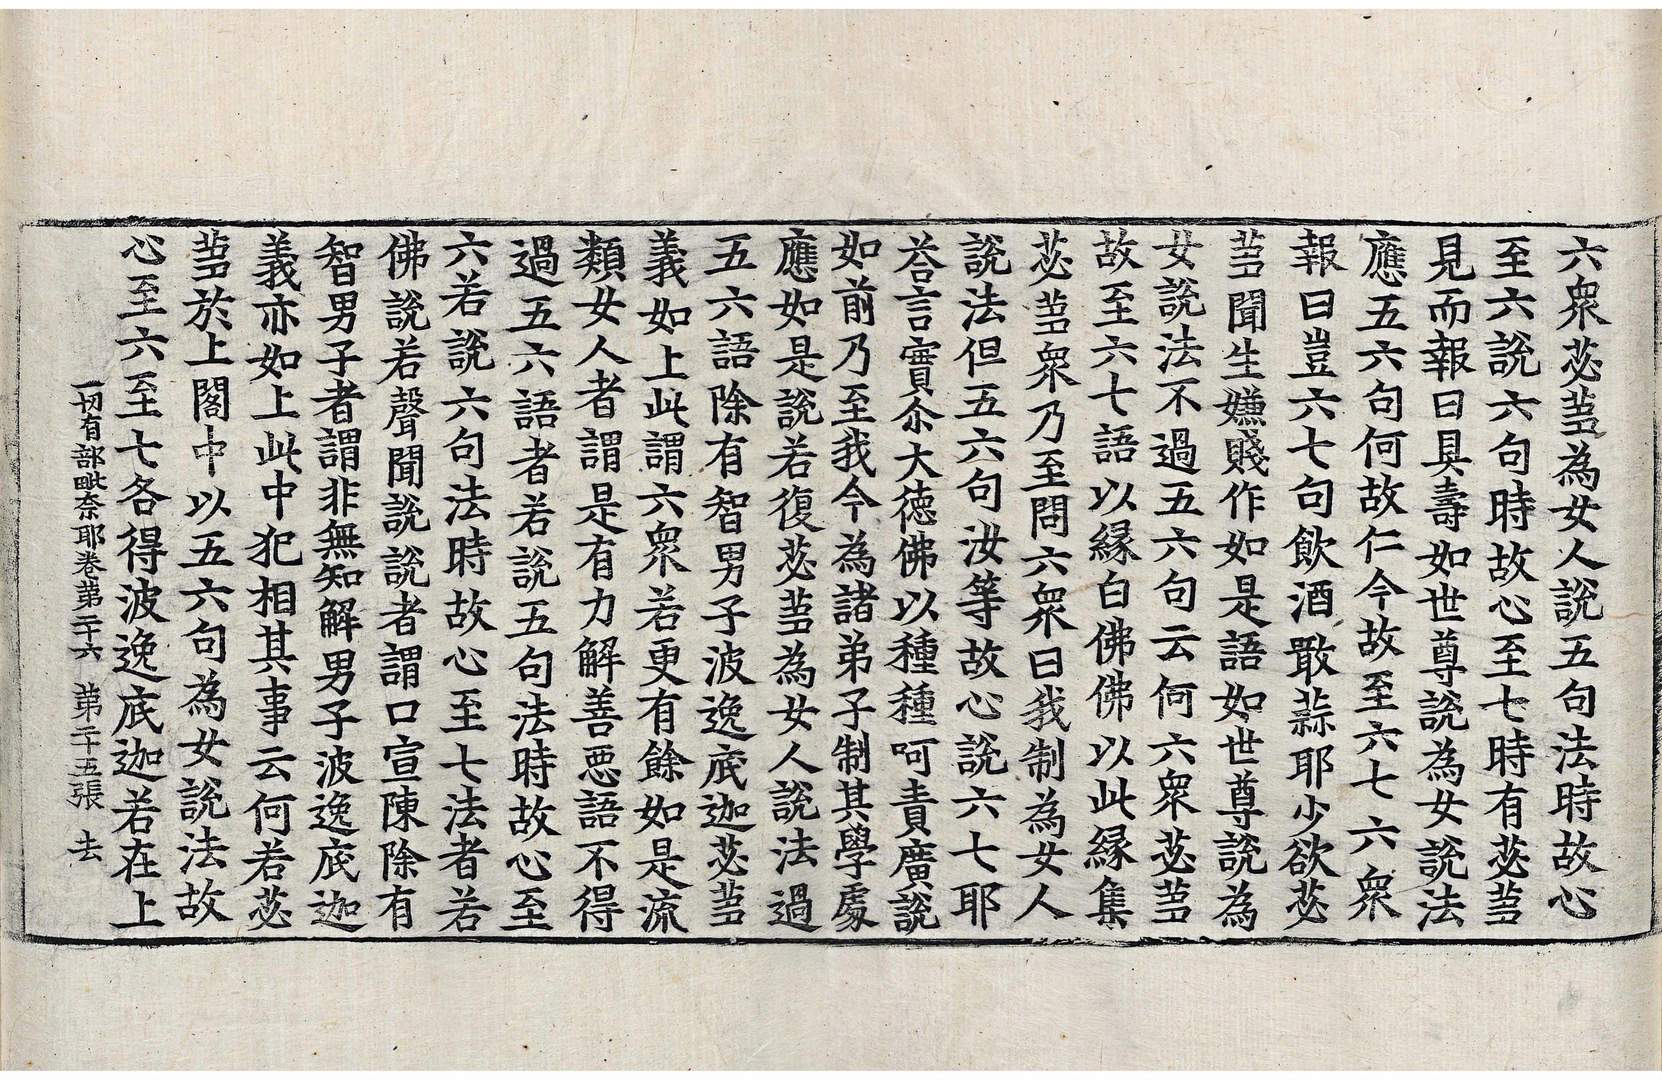 六衆苾蒭為女人說五句法時故心
至六說六句時故心至七時有苾蒭
見而報曰具壽如世尊說為女說法
應五六句何故仁今故至六七六衆
報曰豈六七句飲酒噉蒜耶少欲苾
蒭聞生嫌賤作如是語如世尊說為
女說法不過五六句云何六衆苾蒭
故至六七語以緣白佛佛以此緣集
苾蒭衆乃至問六衆曰我制為女人
說法但五六句汝等故心說六七耶
荅言實尒大德佛以種種呵責廣說
如前乃至我今為諸弟子制其學處
應如是說若復苾蒭為女人說法過
五六語除有智男子波逸底迦苾蒭
義如上此謂六衆若更有餘如是流
類女人者謂是有力解善惡語不得
過五六語者若說五句法時故心至
六若說六句法時故心至七法者若
佛說若聲聞說說者謂口宣陳除有
智男子者謂非無知解男子波逸底迦
義亦如上此中犯相其事云何若苾
蒭於上閣中以五六句為女說法故
心至六至七各得波逸底迦若在上
一切有部毗奈耶卷第二十六　第二十五張　去